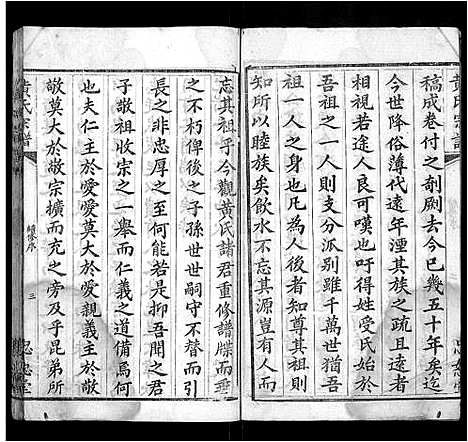 黃氏宗譜
稿成卷付之剞劂去今已幾五十年矣迄
今世降俗薄代遠年湮其族之疏且遠者
幾若途人良可嘆也吁得姓受氏始於
吾祖之一人則支分派別雖千萬世猶吾
祖一人之身也凡為人後者知其祖
知所以睦族矣飲水不忘其源豈有人而
忘其祖乎今觀黃氏諸君重修譜牒而垂
之不朽俾後之子孫世世嗣守不替亦引
長之非忠厚之至何能若是抑吾聞之君
子敬祖收宗之一舉而仁義之道備焉何
也夫仁主於愛愛莫大於愛親義主於敬
敬莫大於敬宗擴而充之旁及乎昆弟所
黃氏宗譜
三